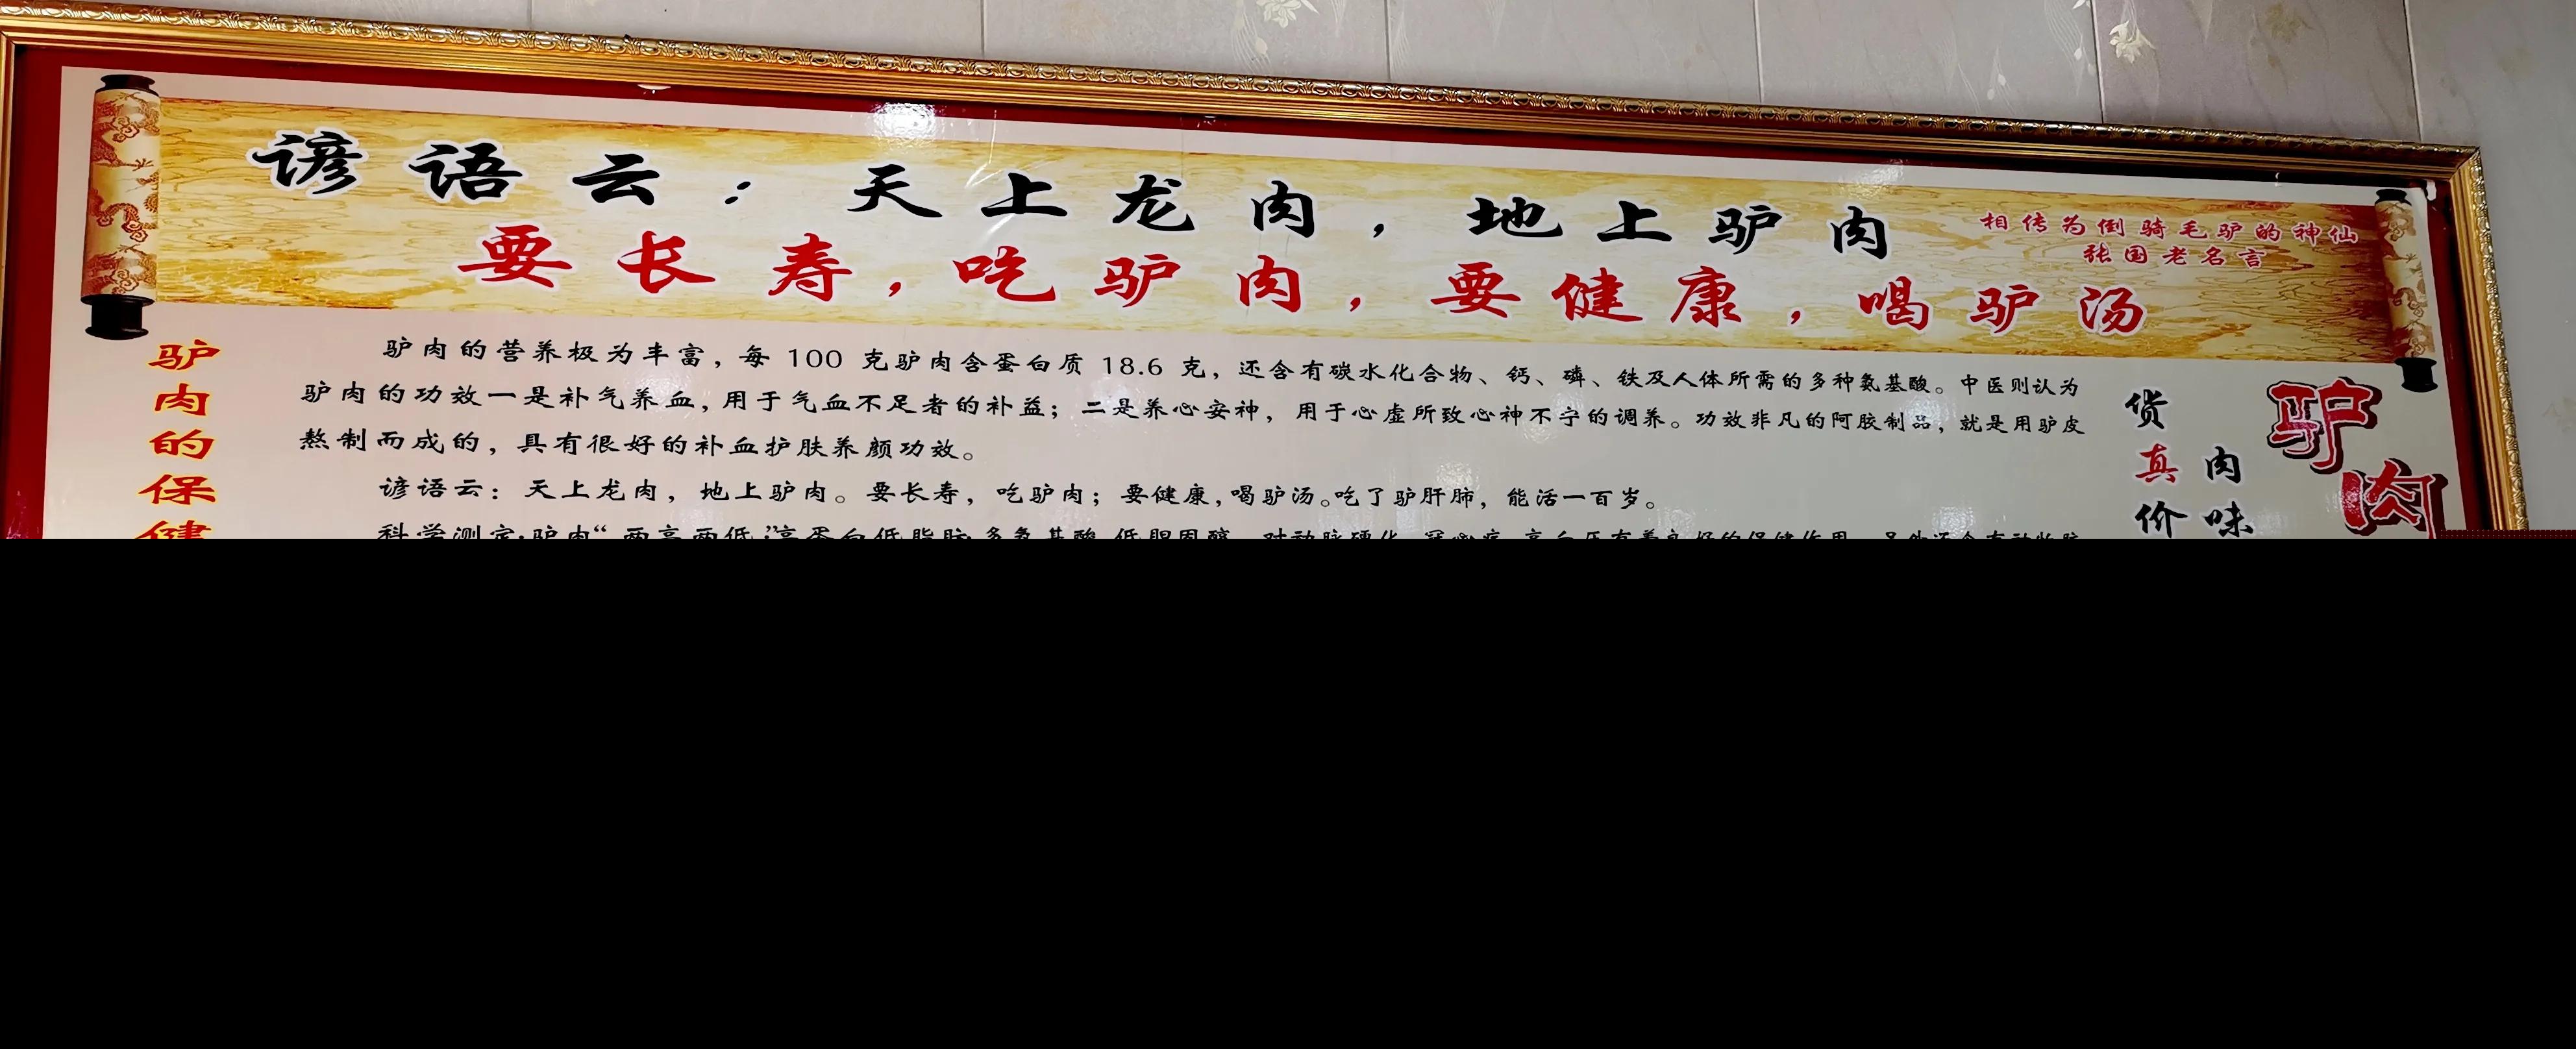 谚语云：天上龙肉，地上驴肉
相传为倒骑毛驴的神仙
张国老名言
要长寿，吃驴肉，要健康，喝驴汤
驴肉的保健
驴肉的营养极为丰富，每 100 克驴肉含蛋白质 18.6 克，还含有碳水化合物、钙、磷、铁及人体所需的多种氨基酸。中医则认为
驴肉的功效一是补气养血，用于气血不足者的补益；二是养心安神，用于心虚所致心神不宁的调养。功效非凡的阿胶制品，就是用驴皮
熬制而成的，具有很好的补血护肤养颜功效。
谚语云：天上龙肉，地上驴肉。要长寿，吃驴肉；要健康，喝驴汤。吃了驴肝肺，能活一百岁。
科学测定：驴肉“两高两低”：高蛋白低脂肪；多氨基酸
货真价
肉味
驴肉